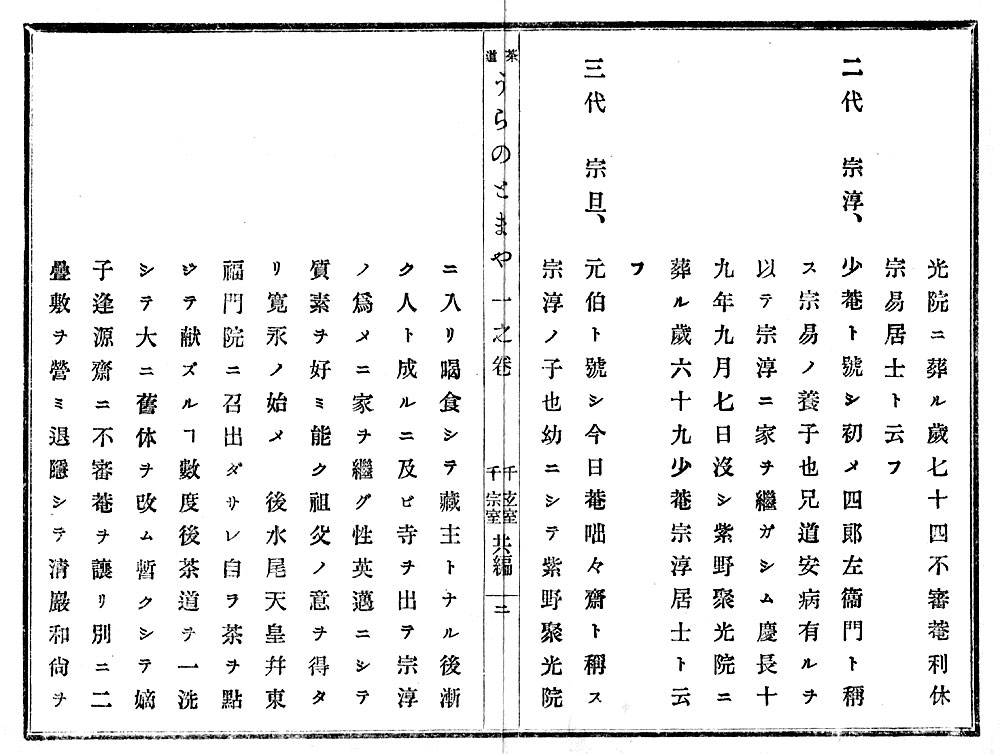 光院ニ葬ル歲七十四不審菴利休
宗易居士ト云フ
二代 宗淳、少菴ト號シ初メ四郞左衞門ト稱
ス宗易ノ養子也兄道安病有ルヲ
以テ宗淳ニ家ヲ繼ガシム慶長十
九年九月七日沒シ紫野聚光院ニ
葬ル歲六十九少菴宗淳居士ト云
フ
三代 宗旦、元伯ト號シ今日菴咄々齋ト稱ス
宗淳ノ子也幼ニシテ紫野聚光院
茶道 うらのとまや 一之卷 千玄室 千宗室 共編 二
ニ入リ喝食シテ藏主トナル後漸
ク人ト成ルニ及ビ寺ヲ出テ宗淳
ノ爲メニ家ヲ繼グ性英邁ニシテ
質素ヲ好ミ能ク祖父ノ意ヲ得タ
リ寬永ノ始メ 後水尾天皇幷東
福門院ニ召出ダサレ自ヲ茶ヲ點
ジテ献ズルヿ數度後茶道ヲ一洗
シテ大ニ舊体ヲ改ム暫クシテ嫡
子逢源齋ニ不審菴ヲ讓リ別ニ二
疊敷ヲ營ミ退隱シテ淸巖和尙ヲ